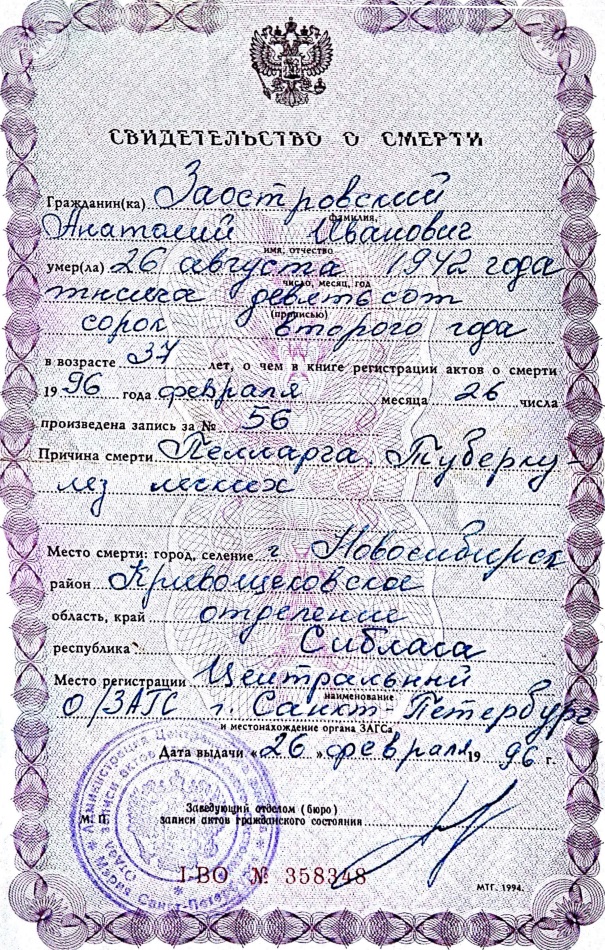 СВИДЕТЕЛЬСТВО О СМЕРТИ
Гражданин(ка) Заостровский
фамилия,
Анатолий Иванович
имя, отчество
умер(ла) 26 августа 1942 года
число, месяц, год
тысяча девятьсот
(прописью)
сорок второго года
в возрасте 37 лет, о чем в книге регистрации актов о смерти
1996 года февраля месяца 26 числа
произведена запись за № 56
Причина смерти Пеллагра. Туберку-
лез легких
Место смерти: город, селение г. Новосибирск
район Кривощековское
область, край отделение
республика Сиблага
Место регистрации Центральный
наименование
О/ЗАГС г. Санкт-Петербург
и местонахождение органа ЗАГСа
Дата выдачи «26» февраля 1996 г.
М. П.
Заведующий отделом (бюро)
записи актов гражданского состояния
I-ВО № 358348
МТГ. 1994.